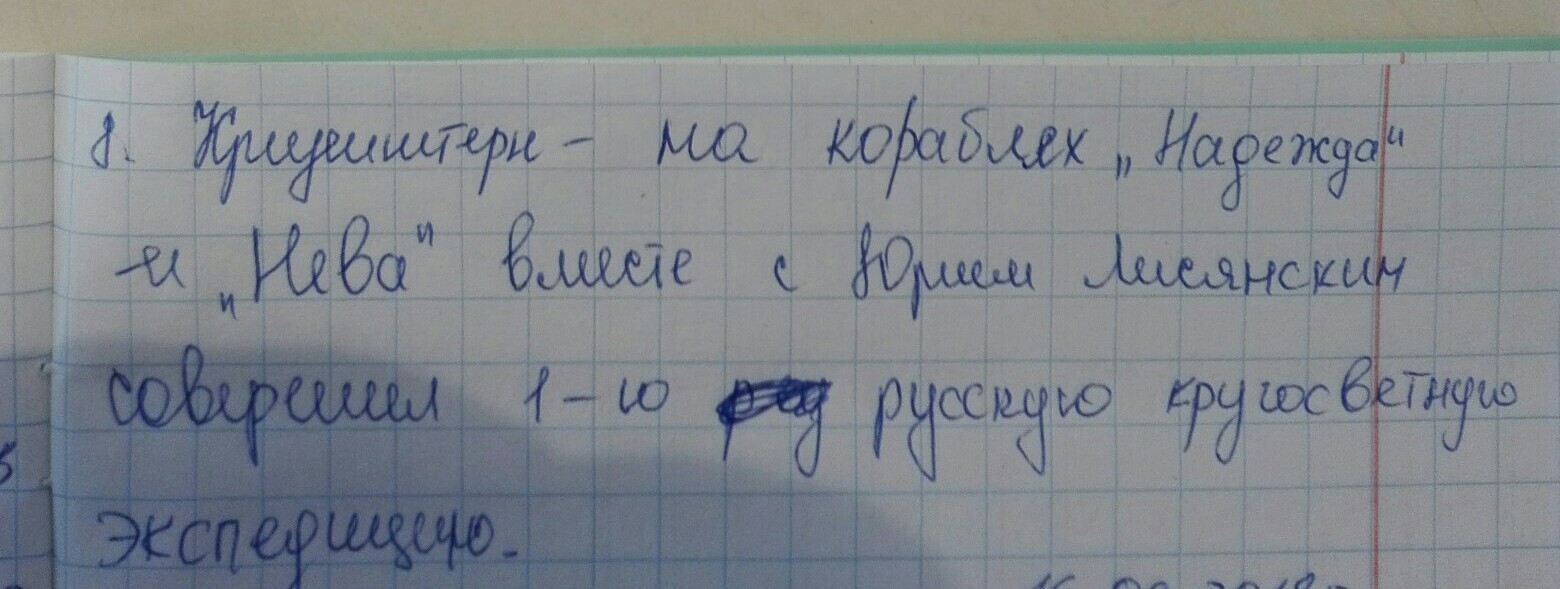 8. Крузенштерн - на кораблях „Надежда"
и „Нева" вместе с Юрием Лисянским
совершил 1-ю русскую кругосветную
экспедицию.